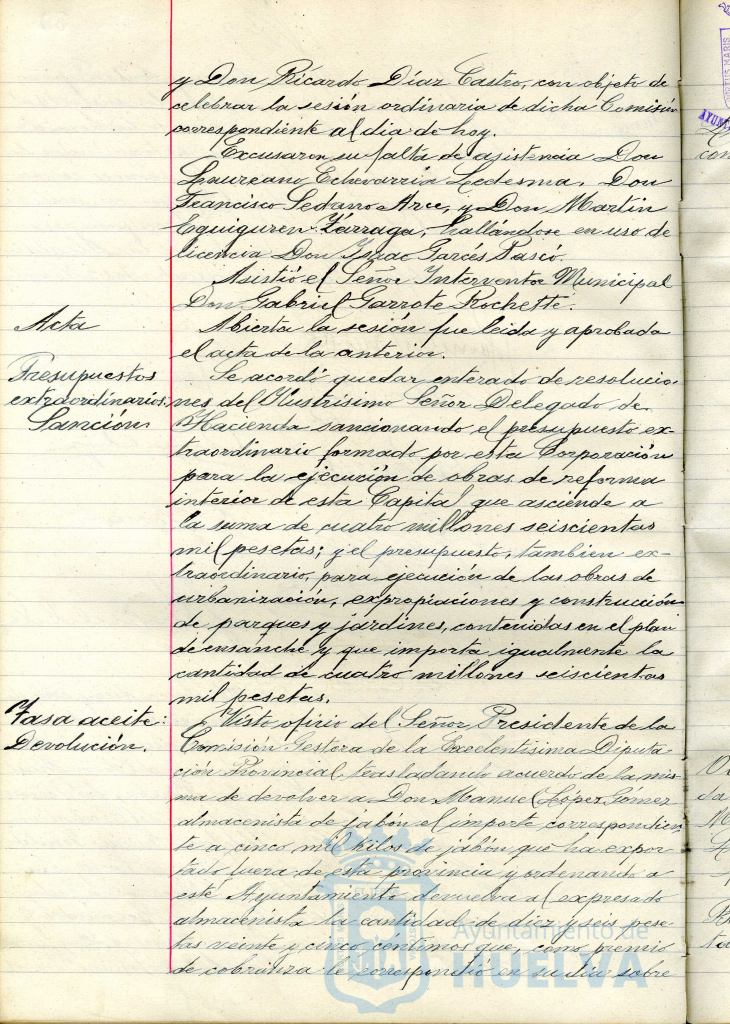 y Don Ricardo Díaz Castro, con objeto de
celebrar la sesión ordinaria de dicha Comisión
correspondiente al dia de hoy.
Excusaron su falta de asistencia Don
Laureano Echevarría Ledesma, Don
Francisco Sedano Arce, y Don Martín
Eguiguren Zárraga, hallándose en uso de
licencia Don Isaac Garcés Pascó.
Asistió el Señor Interventor Municipal
Don Gabriel Garrote Rochette.
Acta
Abierta la sesión fue leida y aprobada
el acta de la anterior.
Presupuestos
extraordinarios.
Sanción
Se acordó quedar enterado de resolucio-
nes del Ilustrísimo Señor Delegado de
Hacienda sancionando el presupuesto ex-
traordinario formado por esta Corporación
para la ejecución de obras de reforma
interior de esta Capital que asciende a
la suma de cuatro millones seiscientas
mil pesetas; y el presupuesto, tambien ex-
traordinario, para ejecución de las obras de
urbanización, expropiaciones y construcción
de parques y jardines, contenidas en el plan
de ensanche y que importa igualmente la
cantidad de cuatro millones seiscientas
mil pesetas.
Tasa aceite:
Devolución.
Visto oficio del Señor Presidente de la
Comisión Gestora de la Excelentísima Diputa
ción Provincial, trasladando acuerdo de la mis
ma de devolver a Don Manuel López Gómez
almacenista de jabón el importe correspondien
te a cinco mil kilos de jabón que ha expor
tado fuera de esta provincia y ordenando a
este Ayuntamiento devuelva al expresado
almacenista la cantidad de diez y seis pese
tas veinte y cinco céntimos que, como premio
de cobranza le correspondió en su día sobre
Ayuntamiento de
HUELVA